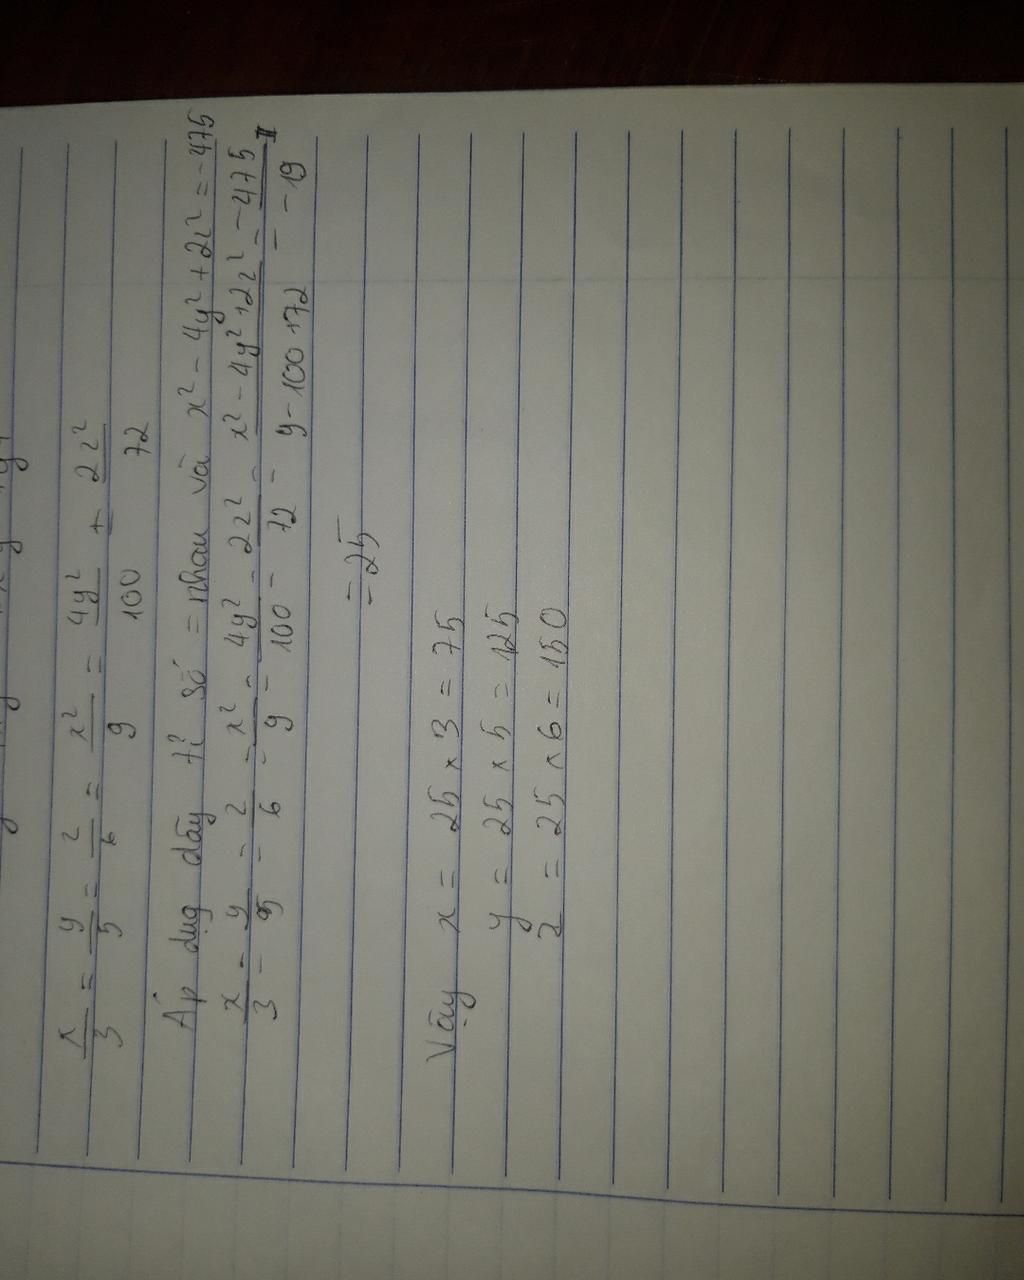 x/3 = y/5 = z/6 = x²/9 = 4y²/100 + 2z²/72
Áp dụg dãy tỉ số = nhau và x² - 4y² + 2z² = -475
x/3 = y/5 = z/6 = x²/9 = 4y²/100 = 2z²/72 = x² - 4y² + 2z²/9 - 100 + 72 = -475/-19
= 25
Vậy x = 25 × 3 = 75
y = 25 × 5 = 125
z = 25 × 6 = 150